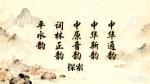 中华通韵
中华新韵
中原音韵
词林正韵
平水韵
探索